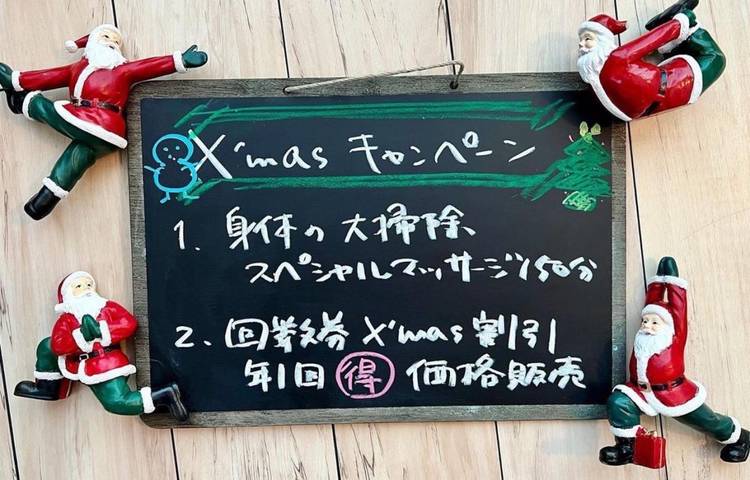 X'mas キャンペーン
1. 身体の大掃除、
スペシャルマッサージ150分
2. 回数券 X'mas 割引
年1回 得 価格販売